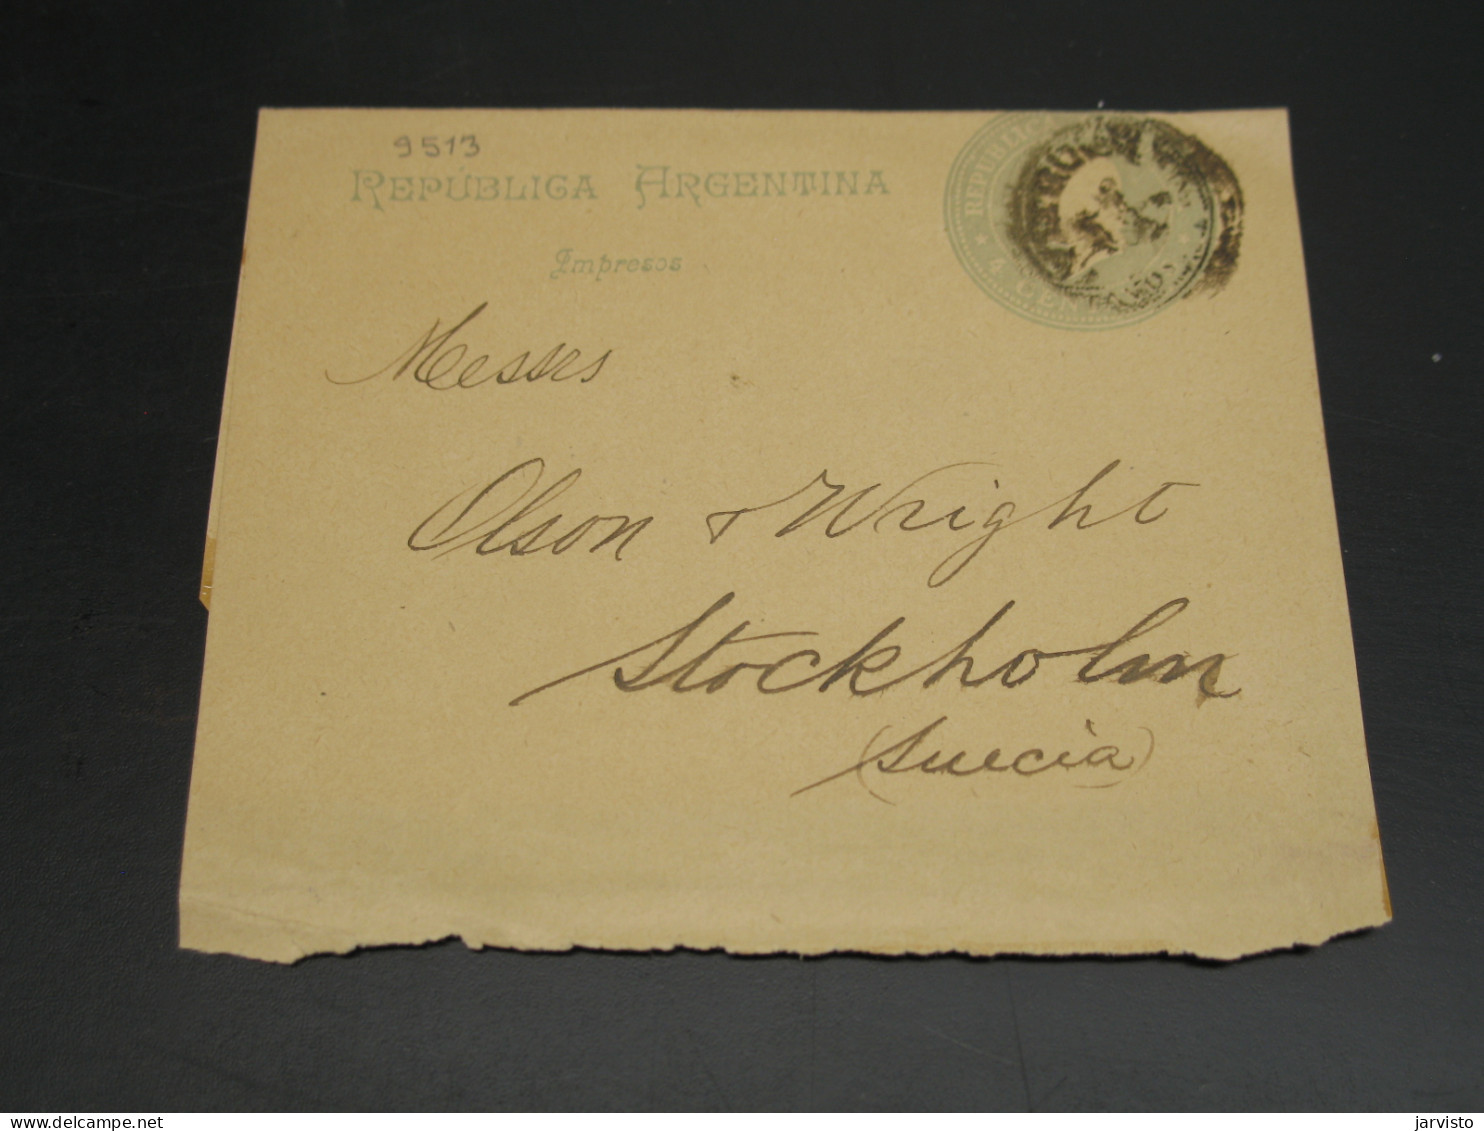 9513
REPÚBLICA ARGENTINA
REPUBLICA
4 CEN
Impresos
Messrs
Olson & Wright
Stockholm
(Suecia)
delcampe.net
jarvisto